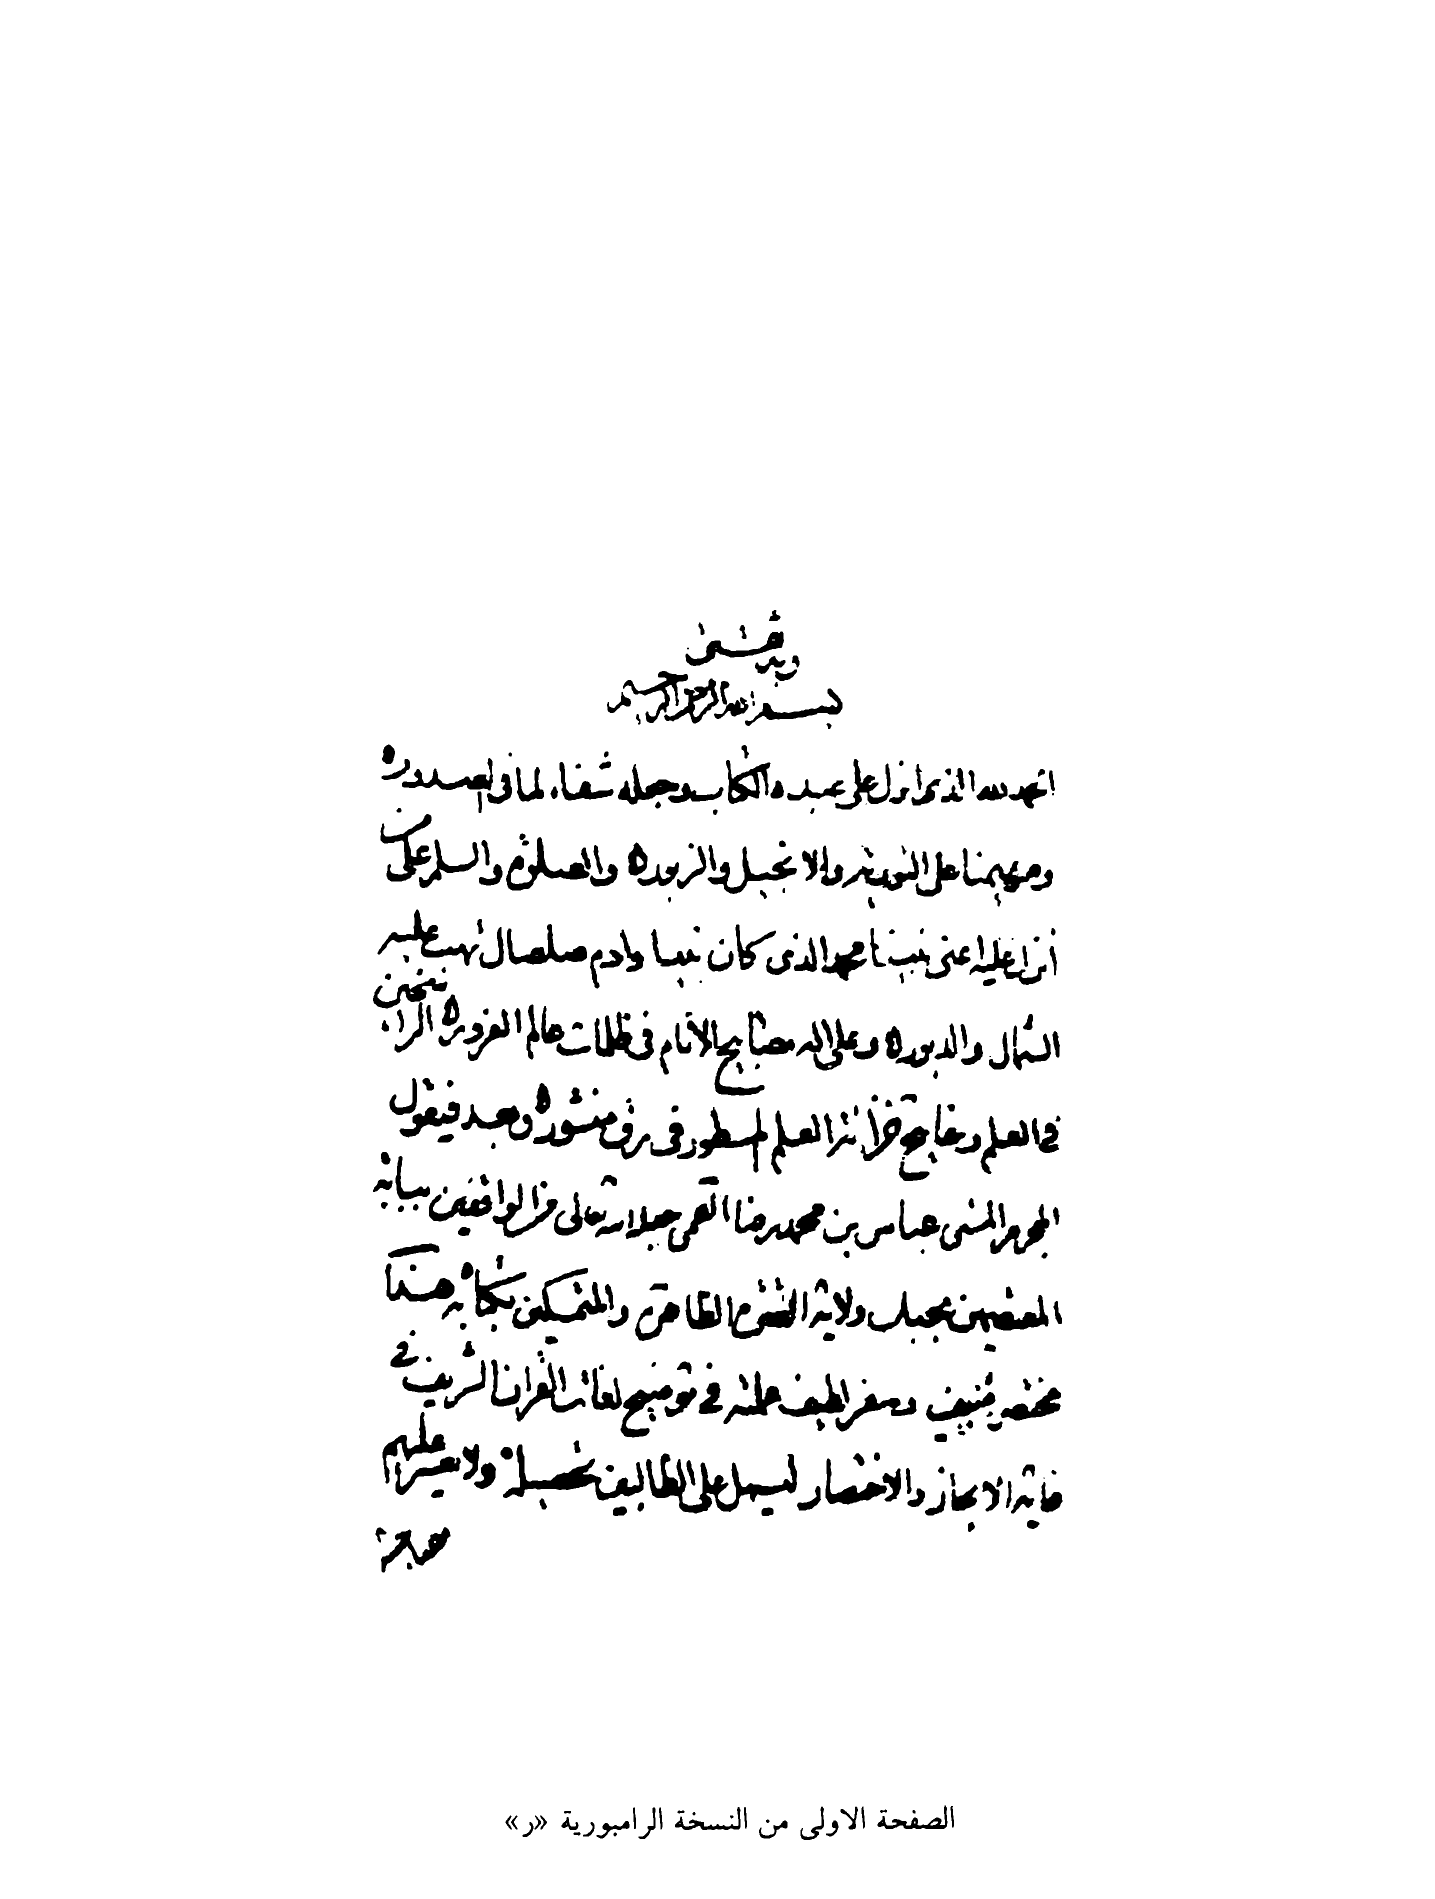 وبه ثقتى
بسم الله الرحمن الرحيم
الحمد لله الذى انزل على عبده الكتاب وجعله شفاء لما فى الصدوره
ومهيمنا على التورية والانجيل والزبوره والصلوة والسلم على من
انزل عليه اعنى نبينا محمد الذى كان نبيا وادم صلصال تهب عليه
الشمال والدبوره وعلى اله مصابيح الانام فى ظلمات عالم الغروره الراسخين
فى العلم ومفاتيح خزائن العلم المسطور فى رق منشوره وبعد فيقول
المجرم المسئ عباس بن محمد رضا القمى جعله الله تعالى من الواقفين ببابه
المعتصمين بحبل ولاية العترة الطاهرة والمتمسكين بكتابه هذا
مختصر منيف وسفر لطيف عملته فى توضيح لغات القران الشريف فى
غاية الايجاز والاختصار ليسهل على الطالبين تحصيله ولا يعسر عليهم
الصفحة الاولى من النسخة الرامبورية «ر»